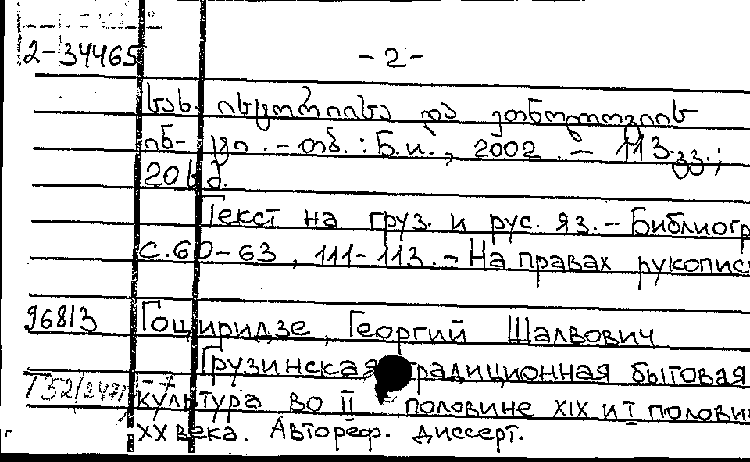 2-34465 - 2 -
სახ. ისტორიისა და ეთნოლოგიის
ინ-ტი. - თბ. : Б.и., 2002. - 113 გვ.;
20 სმ.
Текст на груз. и рус. яз. - Библиогр
с. 60-63, 111-113. - На правах рукопис
96813 Гоциридзе, Георгий Шалвович
Грузинская традиционная бытовая
культура во II половине XIX и I полови
XX века. Автореф. диссерт.